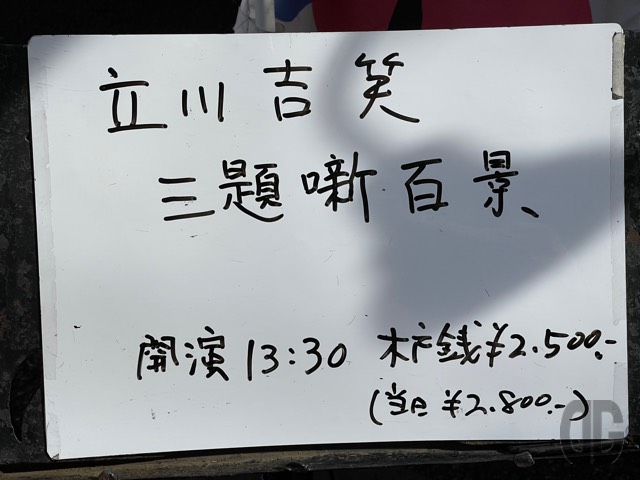 立川吉笑
三題噺百景
開演13:30 木戸銭¥2.500.-
(当日 ¥2.800.-)